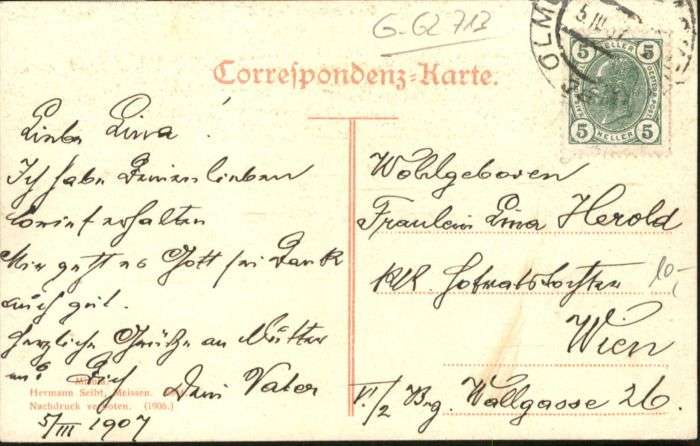 G-GZ 717
OLM
5.III.07
5 KELLER 5
5 HELLER 5
Correspondenz-Karte.
Liebe Lina!
Ich habe Deinen lieben
Brief erhalten
Mir geht es Gott sei Dank
auch gut.
Herzliche Grüße an Mutter
Dich Dein Vater
Hermann Seibt, Meissen.
Nachdruck verboten. (1906.)
5/III 1907
Wohlgeboren
Fräulein Lina Herold
KK. Hofratstochter
10,-
Wien
VI/2 Bzg. Wallgasse 26.